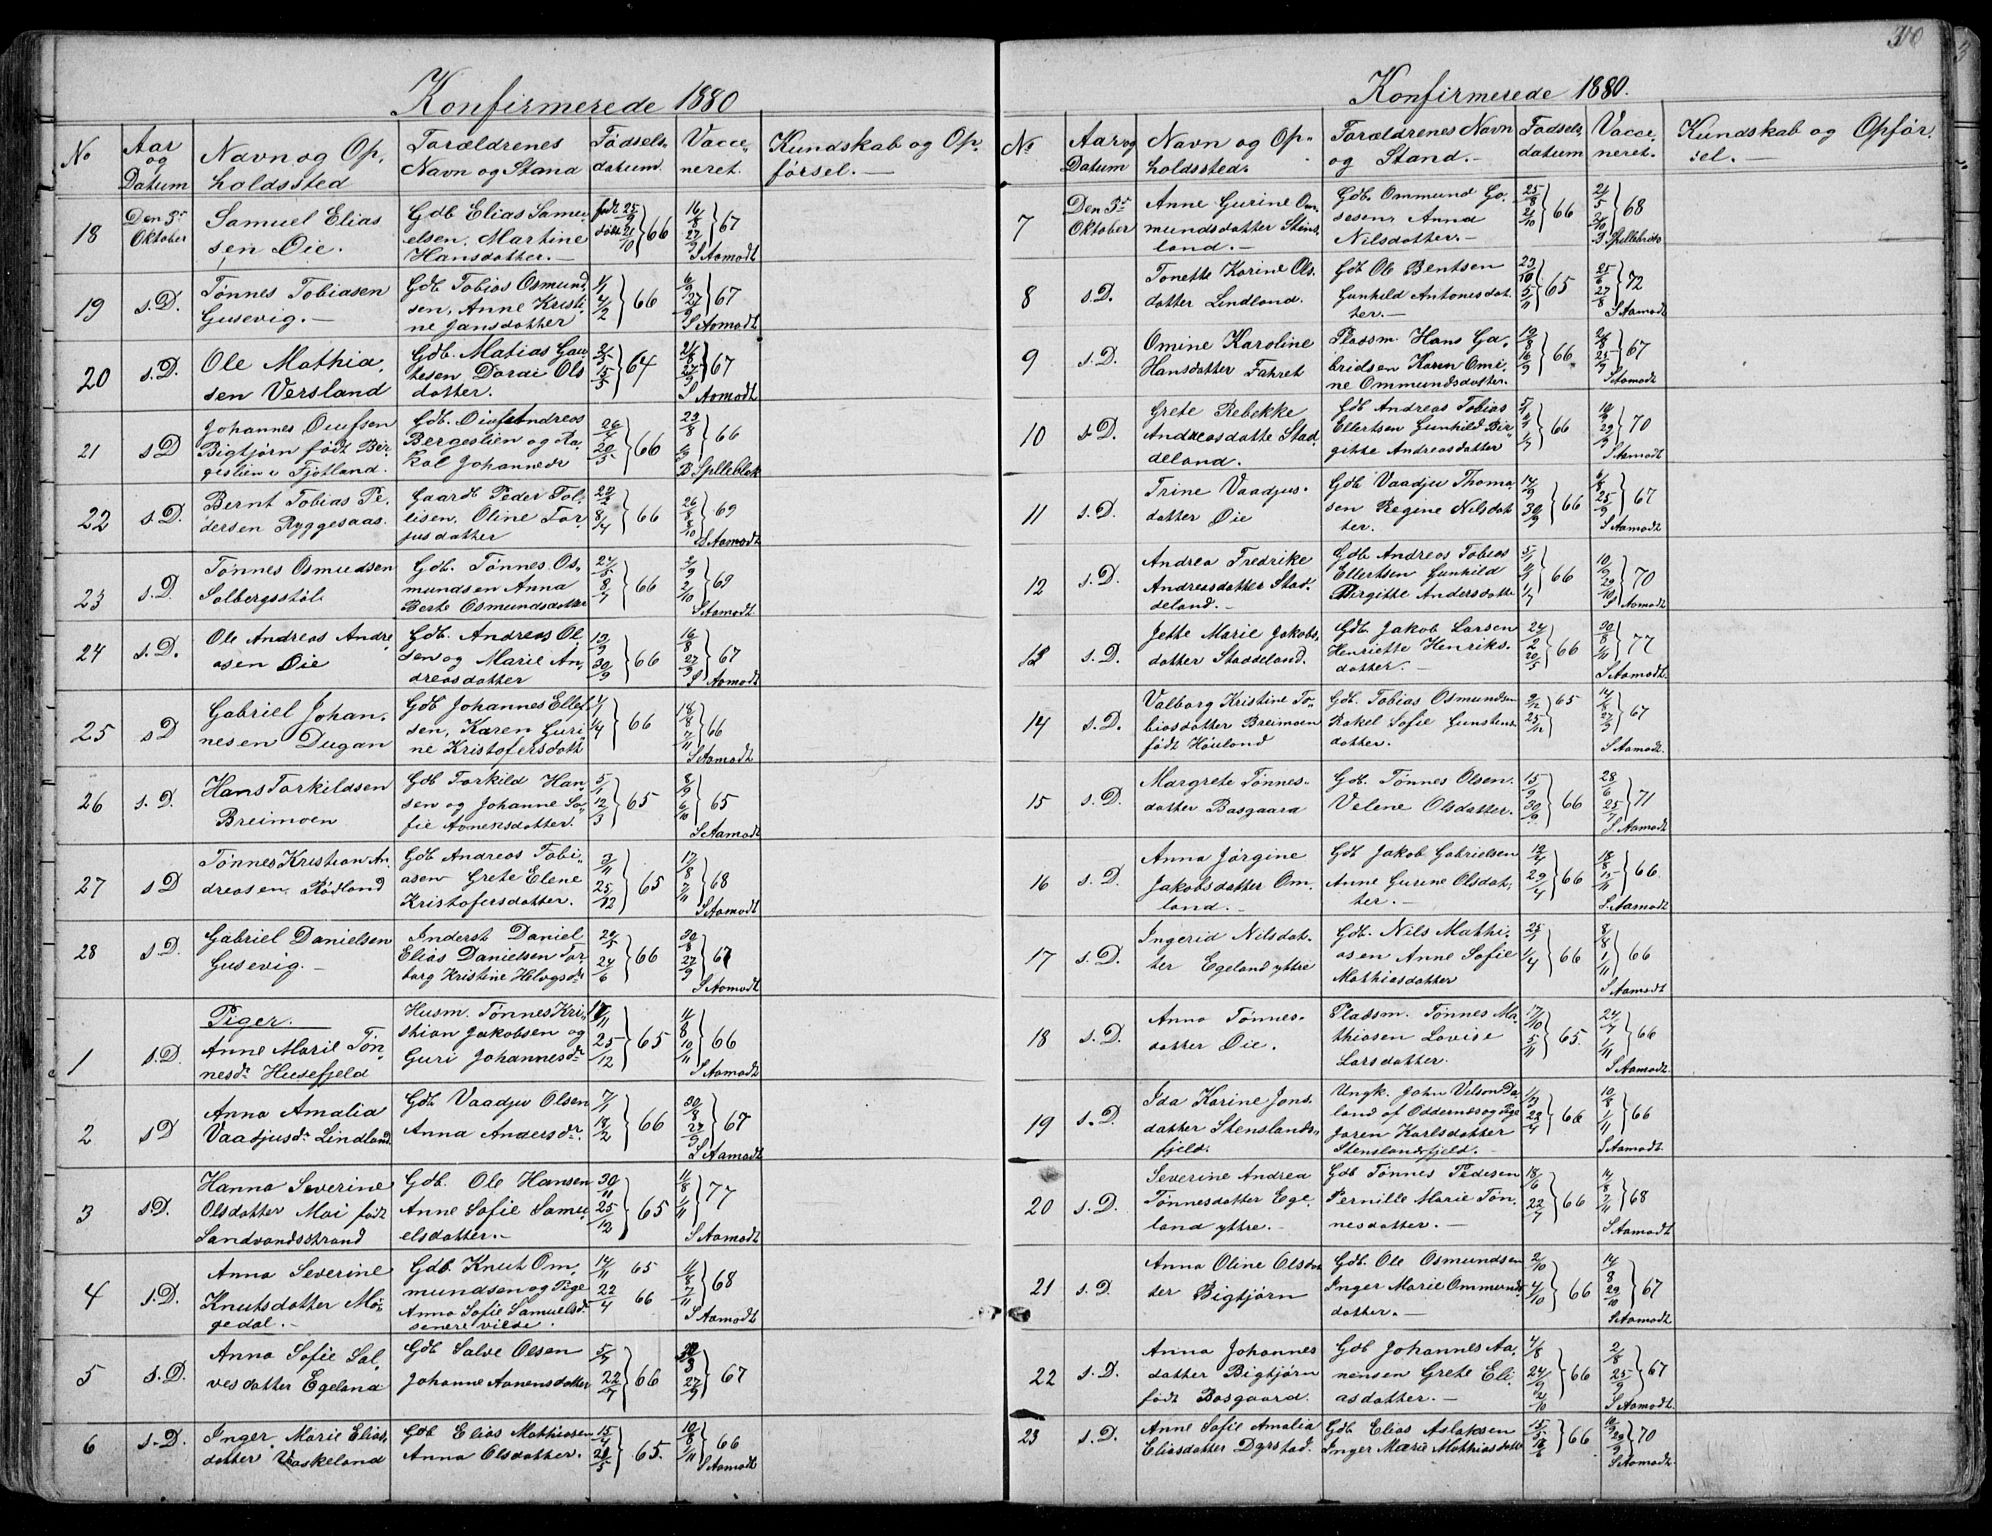 Konfirmerede 1880
No
Aar og Datum
Navn og Opholdssted
Forældrenes Navn og Stand
Fødselsdatum.
Vacceneret.
Kundskab og Opførsel.
18 Den 3die Oktober
Samuel Eliassen Øie.
Gdb Elias Samuelsen, Martine Hansdatter.
født 25/9 døbt 21/10 } 66
16/8 27/9 } 67 S Aamodt
19 s.D.
Tønnes Tobiasen Gusevig.
Gdb. Tobias Osmundsen, Anne Kristine Jansdatter
1/1 4/2 } 66
6/9 27/9 } 67 S Aamodt
20 s.D.
Ole Mathiasen Versland
Gdb. Matias Gautesen Dordi Olsdatter.
64
21/8 27/9 } 67 S Aamodt
21 s D
Johannes Olufsen Bigtjørn født Bergeslien i Fjotland.
Bergeslien og Rakel Johannesdr
26/4 20/5 } 66
23/8 66 B Spilleblok
22 s.D.
Bernt Tobias Pedersen Ryggesaas.
Gaardb. Peder Tollisen, Oline Torjusdatter
66
26/8 8/10 } 69 S Aamodt
23 s.D.
Tønnes Osmundsen Solbergsstøl
Gdb. Tønnes Osmundsen Anna Berte Osmundsdatter
66
2/9 2/10 } 69 S Aamodt
24 s.D.
Ole Andreas Andreasen Øie
Gdb. Andreas Olsen og Marie Andreasdatter
30/9 } 66
16/8 27/9 } 67 S Aamodt
25 s D
Gabriel Johannesen Dugan
Gdb Johannes Ellefsen, Karen Gurine Kristofersdatt
1/4 } 66
18/8 7/11 } 66 S Aamodt
26 s.D.
Hans Torkildsen Breimoen
Gdb Torkild Hansen og Johanne Sofie Aanensdatter.
5/1 12/3 } 65
8/9 6/10 } 65 S Aamodt
27 s D
Tønnes Kristian Andreasen Rødland
Gdb Andreas Tobiasen Grete Elene Kristofersdatter.
3/11 25/12 } 65
17/8 7/11 } 68 S Aamodt
28 s.D
Gabriel Danielsen Gusevig.
Inderst Daniel Elias Danielsen Torborg Kristine Helvigsdr
20/5 24/6 } 66
30/8 27/9 } 67 S Aamodt
Piger.
1 s.D.
Anne Marie Tønnesdr Husefjeld
Husm. Tønnes Kristian Jakobsen og Guri Johannesdr
17/11 25/12 } 65
11/8 10/11 } 66 S Aamodt
2 s D
Anna Amalia Vaadjusdr Lindland.
Gdb Vaadju Olsen Anna Andersdr.
7/1 18/2 } 66
30/8 27/9 } 67 S Aamodt
3 s D.
Hanna Severine Olsdatter Moi født Sandvandsstrand
Gdb. Ole Hansen Anne Sofie Samuelsdatter.
30/11 25/12 } 65
11/8 1/11 } 77 S Aamodt
4 s.D.
Anna Severine Knutsdatter Møgedal.
Gdb. Knut Ommundsen og Pige Anna Sofie Samuelsdr senere vilde.
14/11 65 22/4 66
11/8 7/11 } 68 S Aamodt
5 s.D.
Anna Sofie Salvesdatter Egeland
Gdb Salve Olsen Johanne Aanensdatter
66
27/9 } 67
6 s.D.
Inger Marie Eliasdatter Vaskeland
Gdb Elias Mathiasen Anna Olsdatter.
15/4 21/5 } 65.
10/8 1/11 } 66 S Aamodt
Konfirmerede 1880.
No
Aar og Datum
Navn og Opholdssted.
Forældrenes Navn og Stand.
Fødselsdatum
Vacceneret.
Kundskab og Opførsel.
7 Den 3die Oktober
Anne Gurine Ommundsdatter Stensland.
Gdb Ommund Gosesen, Anna Nilsdatter.
25/8 21/10 } 66
21/5 68 B Spellebrok
8 s.D.
Tonette Karine Olsdatter Lindland.
Gdb Ole Bentsen Gunhild Antonesdatter.
23/10 5/11 } 65
25/6 27/8 } 72 S Aamodt
9 s.D.
Omine Karoline Hansdatter Fahret
Plassm. Hans Gabrielsen Karen Omine Ommundsdatter.
12/8 16/9 } 66
21/8 25/9 } 67 S Aamodt
10 s.D.
Grete Rebekke Andreasdatte Staddeland.
Gdb Andreas Tobias Ellertsen Gunhild Birgitte Andreasdatter
66
70 S Aamodt
11 s.D.
Trine Vaadjusdatter Øie
Gdb Vaadju Thomasen Regine Nilsdatter.
14/9 30/9 } 66
6/8 25/9 } 67 S Aamodt
12 s.D.
Andrea Fredrike Andreasdatter Staddeland.
Gdb Andreas Tobias Ellertsen Gunhild Birgitte Andersdatte
66
10/9 29/10 } 70 S Aamodt
13 s.D.
Jette Marie Jakobsdatter Staddeland.
Gdb. Jakob Larsen Henriette Henriksdatter.
24/2 20/5 } 66
30/8 1/11 } 77 S Aamodt.
14 s.D.
Valborg Kristine Tobiasdatter Breimoen født Høiland
Gdb. Tobias Osmundsen Rakel Sofie Gunstensdatter.
2/12 25/12 } 65
67 S Aamodt.
15 s.D.
Margrete Tønnesdatter Basgaard
Gdb. Tønnes Olsen. Velene Olsdatter.
15/9 30/9 } 66
28/6 25/7 } 71 S Aamodt
16 s.D.
Anna Jørgine Jakobsdatter Omland.
Gdb Jakob Gabrielsen Anne Gurine Olsdatter.
29/4 } 66
18/8 15/11 } 66 S. Aamodt
17 s.D.
Ingerid Nilsdatter Egeland yttre
Gdb. Nils Mathiasen Anne Sofie Mathiasdatter
1/4 } 66
8/8 1/11 } 66 S Aamodt
18 s.D
Anna Tønnesdatter Øie.
Plassm. Tønnes Mathiasen Lovise Larsdatter.
17/10 5/11 } 65.
24/7 1/11 } 66 S Aamodt
19 s.D
Ida Karine Jonsdatter Stenslandsfjeld.
Ungk. John Velson Daland af Oddernes og Pige Joren Karlsdatter Stenslandsfjeld.
22/4 } 66
10/8 1/11 } 66 S Aamodt
20 s.D.
Severine Andrea Tønnesdatter Egeland yttre.
Gdb Tønnes Pedersen Pernille Marie Tønnesdatter.
18/6 22/7 } 66
14/8 7/11 } 68 S Aamodt
21 s.D.
Anna Oline Olsdatter Bigtjørn
Gdb. Ole Osmundsen Inger Marie Ommundsdatter.
2/10 4/10 } 66
14/8 29/10 } 67 S Aamodt
22 s.D.
Anna Johannesdatter Bigtjørn født Bosgaard.
Gdb Johannes Aanensen Grete Eliasdatter.
4/8 24/9 2/10 } 66
2/8 25/9 } 67 S Aamodt
23 s.D.
Anne Sofie Amalia Eliasdatter Dyrstad.
Gdb Elias Aslaksen Inger Marie Mathiasdatt
66
70 S Aamodt.